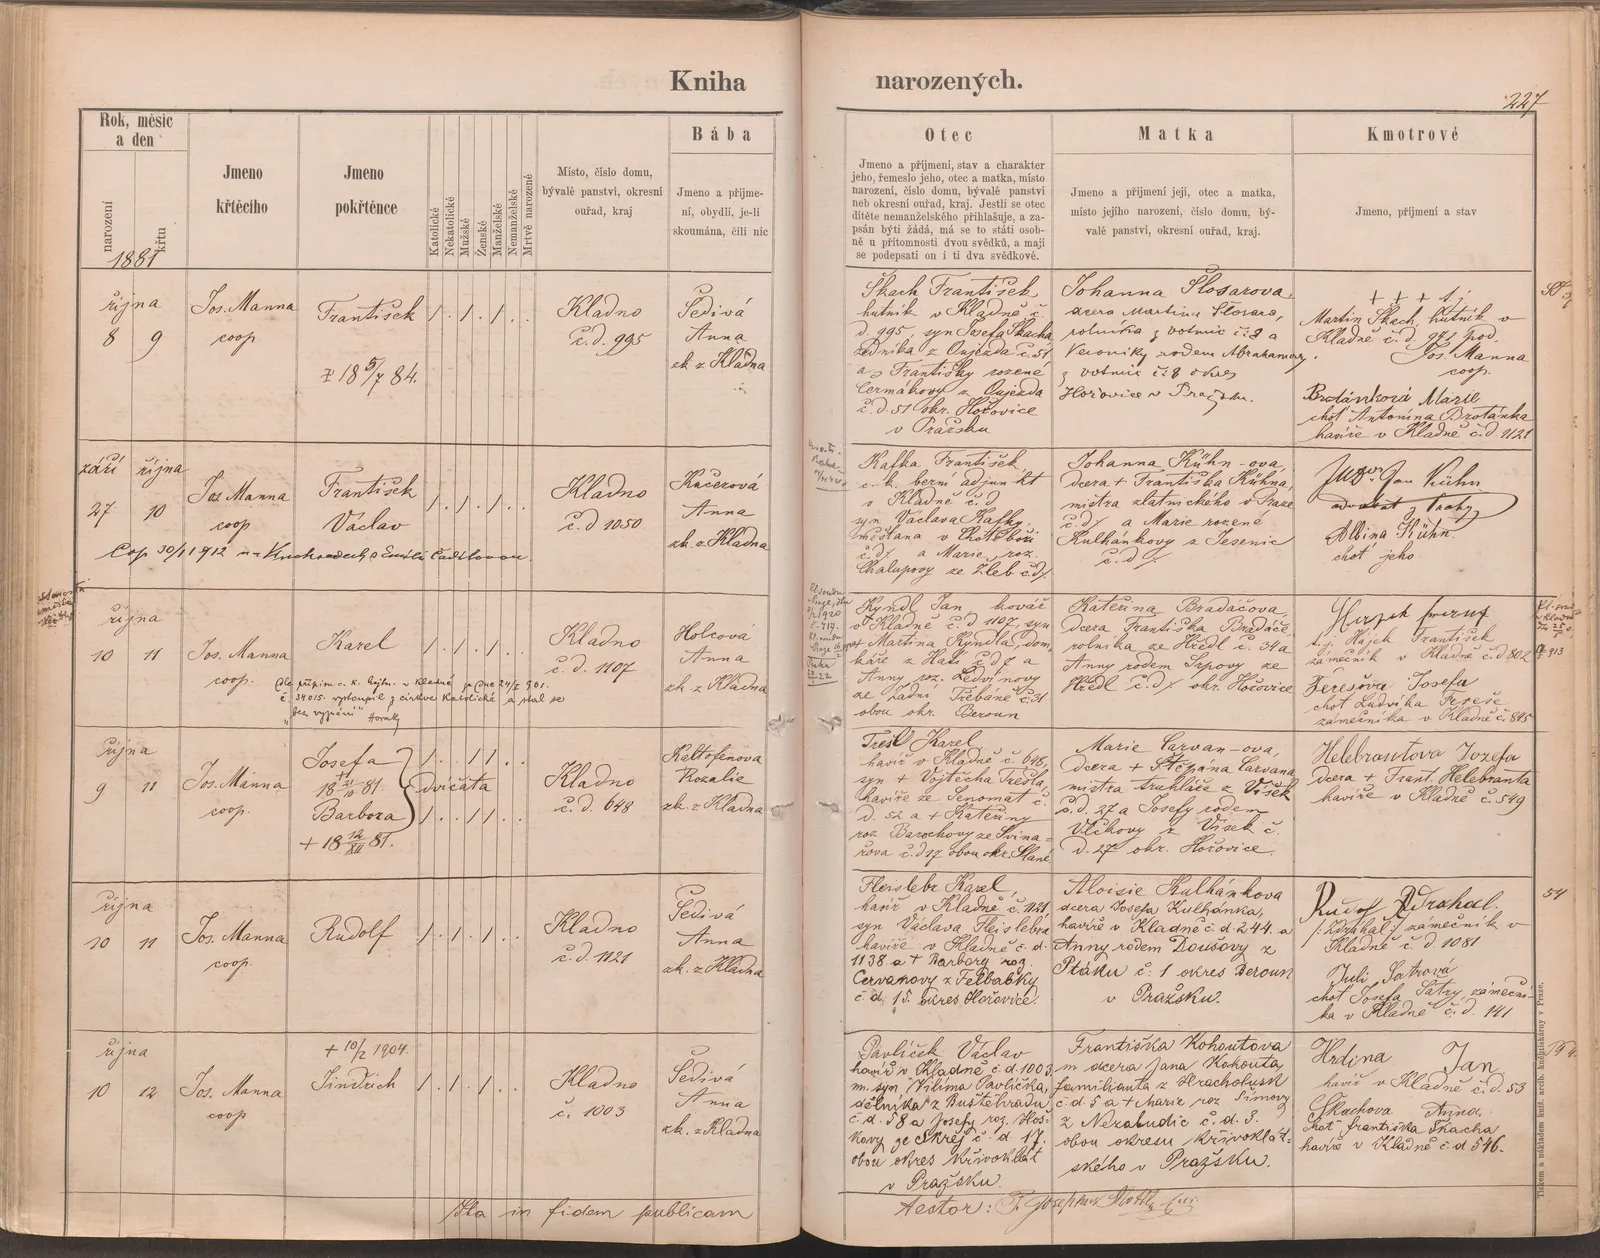 Kniha
narozených.
227
Rok, měsíc
a den
narození
křtu
1881
Jmeno
křtěcího
Jmeno
pokřtěnce
Katolické
Nekatolické
Mužské
Ženské
Manželské
Nemanželské
Mrtvě narozené
Místo, číslo domu,
bývalé panství, okresní
ouřad, kraj
Bába
Jmeno a příjme-
ní, obydlí, je-li
skoumána, čili nic
Otec
Jmeno a příjmení, stav a charakter
jeho, řemeslo jeho, otec a matka, místo
narození, číslo domu, bývalé panství
neb okresní ouřad, kraj. Jestli se otec
dítěte nemanželského přihlašuje, a za-
psán býti žádá, má se to státi osob-
ně u přítomnosti dvou svědků, a mají
se podepsati on i ti dva svědkové.
Matka
Jmeno a přijmení její, otec a matka,
místo jejího narození, číslo domu, bý-
valé panství, okresní ouřad, kraj.
Kmotrové
Jmeno, příjmení a stav
října
8 9
Jos. Manna
coop
František
18 5/7 84.
Kladno
č. d. 995
Šedivá
Anna
zk z Kladna
Škach František,
hutník v Kladně č.
d. 995, syn Josefa Škacha
zedníka z Oujezda č. 51
a Františky rozené
Čermákovy z Oujezda
č. d. 51 okr. Hořovice
v Pražsku
Johanna Šlosarova,
dcera Martina Šlosara,
rolníka z Votmic č. 8 a
Veroniky rodem Abrahamovy
z Votmic č. 8 okres
Hořovice v Pražsku.
+ + + tj
Martin Škach, hutník v
Kladně č. d. 972 pod.
Jos. Manna
coop.
Brotánková Marie
choť Antonína Brotánka
havíře v Kladně č. d. 1121
září října
27 10
Jos Manna
coop
František
Václav
Kladno
č. d 1050
Kučerová
Anna
zk. z Kladna
Cop. 30/1 1912
Kafka František,
c. k. berní adjunkt
v Kladně č. d
syn Václava Kafky
měšťana v Chotěboři
č. d/. a Marie, roz.
Chalupovy ze Žleb č. d/.
Johanna Kühn-ova,
dcera + Františka Kühna,
mistra zlatnického v Praze
č. d/. a Marie rozené
Kulhánkovy z Jesenic
č. d/.
Jan Kühn
advokat z Prahy
Albina Kühn.
choť jeho
října
10 11
Jos. Manna
coop.
Karel
Kladno
č. d. 1107
Holcová
Anna
zk. z Kladna
Dle přípisu c. k. hejtm. v Kladně
č. 34015. vystoupil z církve katolické a stal se
"bez vyznání"
Kyndl Jan, kovář
v Kladně č. d 1107, syn
Martina Kyndla, dom-
káře z Hatí č. d 7 a
Anny roz. Ledvinovy
ze Zadní Třebáně č. 31
obou okr. Beroun
Kateřina Bradáčova,
dcera Františka Bradáče
rolníka ze Hředl č. 34 a
Anny rodem Srpovy ze
Hředl č. d/. okr. Hořovice
tj Hájek František
zámečník v Kladně č. d 802
Ferešova Josefa
choť Ludvíka Fereše
zámečníka v Kladně č. 845
října
9 11
Jos. Manna
coop.
Josefa
Barbora
+ 18 12/XII 81.
dvojčata
Kladno
č. d. 648
Kaltofenova
Rozalie
zk. z Kladna
Trešl Karel
havíř v Kladně č. 648,
syn + Vojtěcha Trešla,
havíře ze Senomat č.
d. 52 a + Kateřiny
roz Barochovy ze Svina-
řova č. d 17 obou okr. Slané
Marie Carvan-ova,
dcera + Štěpána Carvana
mistra truhláře z Vísek
č. d. 27 a Josefy rodem
Vlčkovy z Vísek č.
d. 27 okr. Hořovice.
Helebrantova Jozefa
dcera + Frant. Helebranta
havíře v Kladně č. 549
října
10 11
Jos. Manna
coop.
Rudolf
Kladno
č. d. 1121
Šedivá
Anna
zk. z Kladna
Fleislebr Karel,
havíř v Kladně č. 1121
syn Václava Fleislebra
havíře v Kladně č. d.
1138 a + Barbory roz.
Červanovy z Felbabky
č. d. 15. okres Hořovice.
Aloisie Kulhánkova
dcera Josefa Kulhánka,
havíře v Kladně č. d 244. a
Anny rodem Dousovy z
Ptáku č. 1 okres Beroun
v Pražsku.
Rudolf Zdrahal.
/: Zdrahal :/ zámečník v
Kladně č. d 1081
Juli Satrová
choť Josefa Satry, zámeční-
ka v Kladně č. d. 141
54
října
10 12
Jos. Manna
coop
+ 10/2 1904.
Jindřich
Kladno
č. 1003
Šedivá
Anna
zk. z Kladna
Pavlíček Václav
havíř v Kladně č. d. 1003
m. syn Vilíma Pavlíčka,
dělníka z Buštěhradu
č. d. 58 a Josefy roz. Hoš-
kovy ze Skrej č. d. 17.
obou okres Křivoklát
v Pražsku.
Františka Kohoutova
m dcera Jana Kohouta
familianta z Hracholusk
č. d 5 a + Marie roz Šímovy
z Nezabudic č. d. 3.
obou okresu Křivoklát-
ského v Pražsku.
Hrdina Jan
havíř v Kladně č. d. 53
Škachova Anna.
choť Františka Škacha
havíře v Kladně č. d 546.
Ita in fidem publicam
Aestor: P. Josephus
Tiskem a nákladem kníž. arcib. knihtiskárny v Praze.